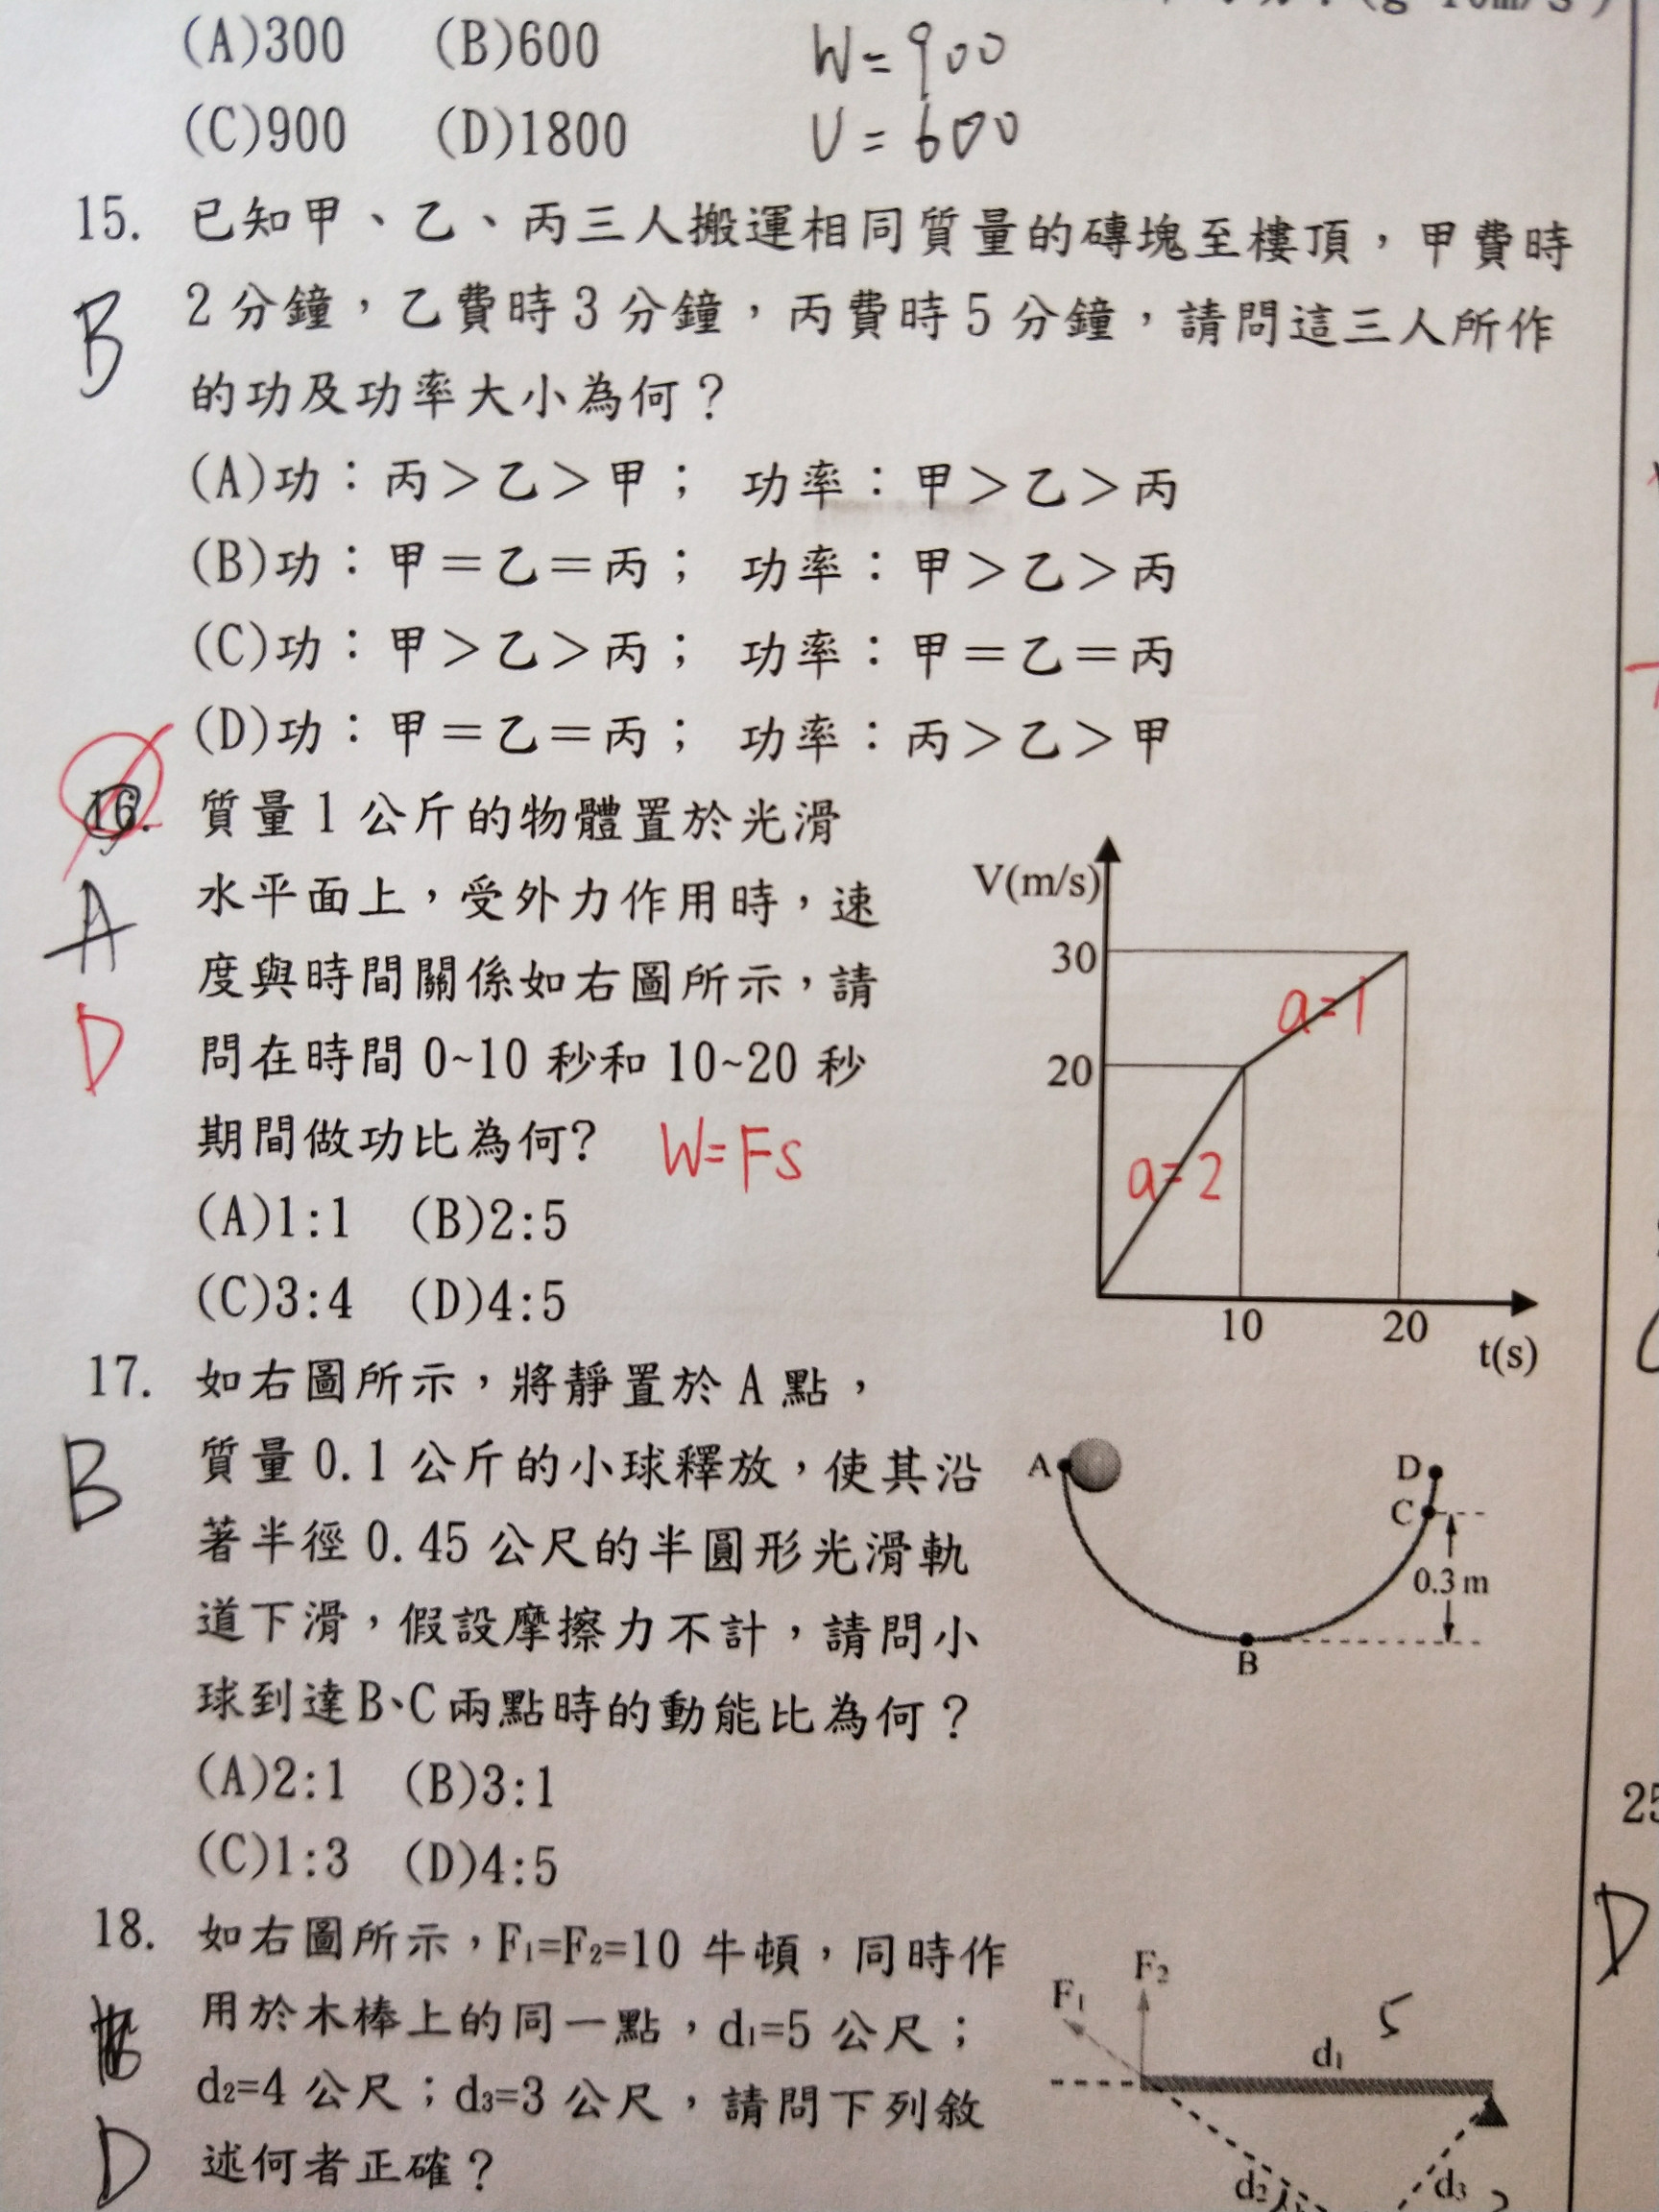 (A)300 (B)600 W=900
(C)900 (D)1800 U=600
15. 已知甲、乙、丙三人搬運相同質量的磚塊至樓頂，甲費時
B 2分鐘，乙費時3分鐘，丙費時5分鐘，請問這三人所作
的功及功率大小為何？
(A)功：丙＞乙＞甲； 功率：甲＞乙＞丙
(B)功：甲＝乙＝丙； 功率：甲＞乙＞丙
(C)功：甲＞乙＞丙； 功率：甲＝乙＝丙
(D)功：甲＝乙＝丙； 功率：丙＞乙＞甲
16. 質量1公斤的物體置於光滑
A 水平面上，受外力作用時，速
度與時間關係如右圖所示，請
D 問在時間 0~10 秒和 10~20 秒
期間做功比為何? W=Fs
(A)1:1 (B)2:5
(C)3:4 (D)4:5
V(m/s)
30
a=1
20
a=2
10 20
t(s)
17. 如右圖所示，將靜置於 A 點，
B 質量0.1公斤的小球釋放，使其沿
著半徑0.45公尺的半圓形光滑軌
道下滑，假設摩擦力不計，請問小
球到達B、C兩點時的動能比為何？
(A)2:1 (B)3:1
(C)1:3 (D)4:5
A D
C
0.3 m
B
18. 如右圖所示，F1=F2=10 牛頓，同時作
用於木棒上的同一點，d1=5 公尺；
d2=4 公尺；d3=3 公尺，請問下列敘
D 述何者正確？
F2
F1
5
d1
d2 d3
25
D